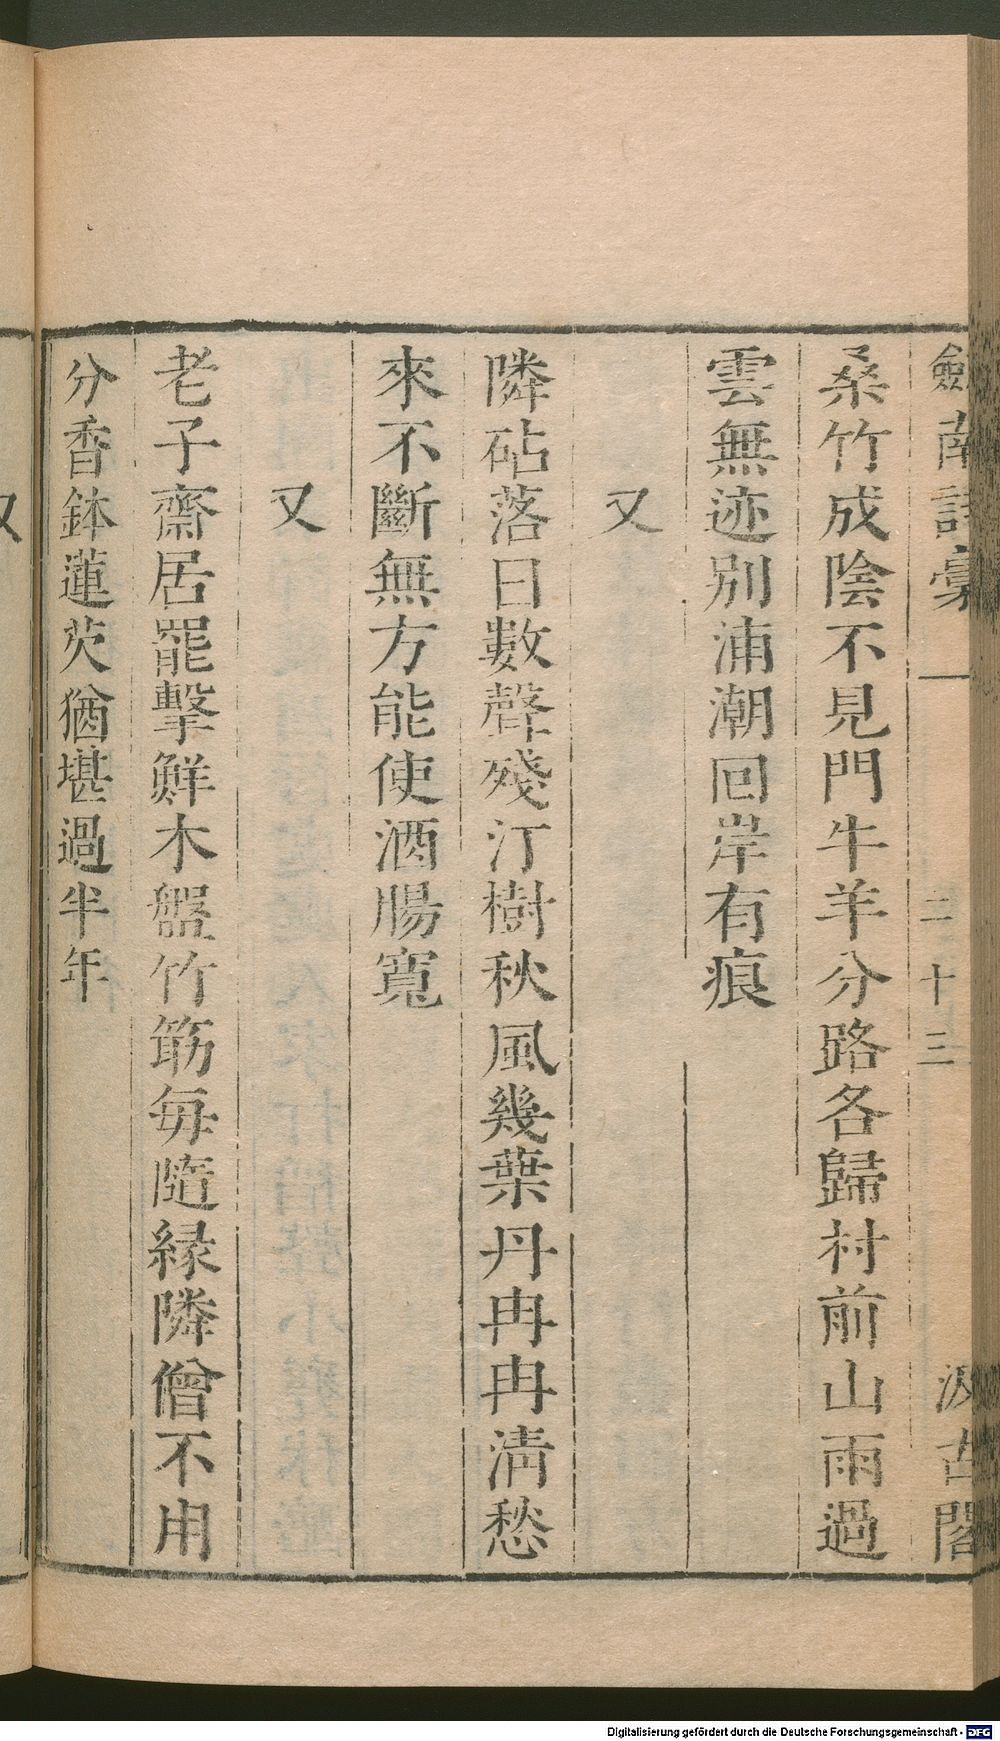 劒南詩稾
二十三
汲古閣
桑竹成陰不見門牛羊分路各歸村前山雨過
雲無迹別浦潮回岸有痕
又
隣砧落日數聲殘汀樹秋風幾葉丹冉冉淸愁
來不斷無方能使酒腸寬
又
老子齋居罷擊鮮木盤竹筯每隨緣隣僧不用
分香鉢蓮芡猶堪過半年
又
Digitalisierung gefördert durch die Deutsche Forschungsgemeinschaft - DFG